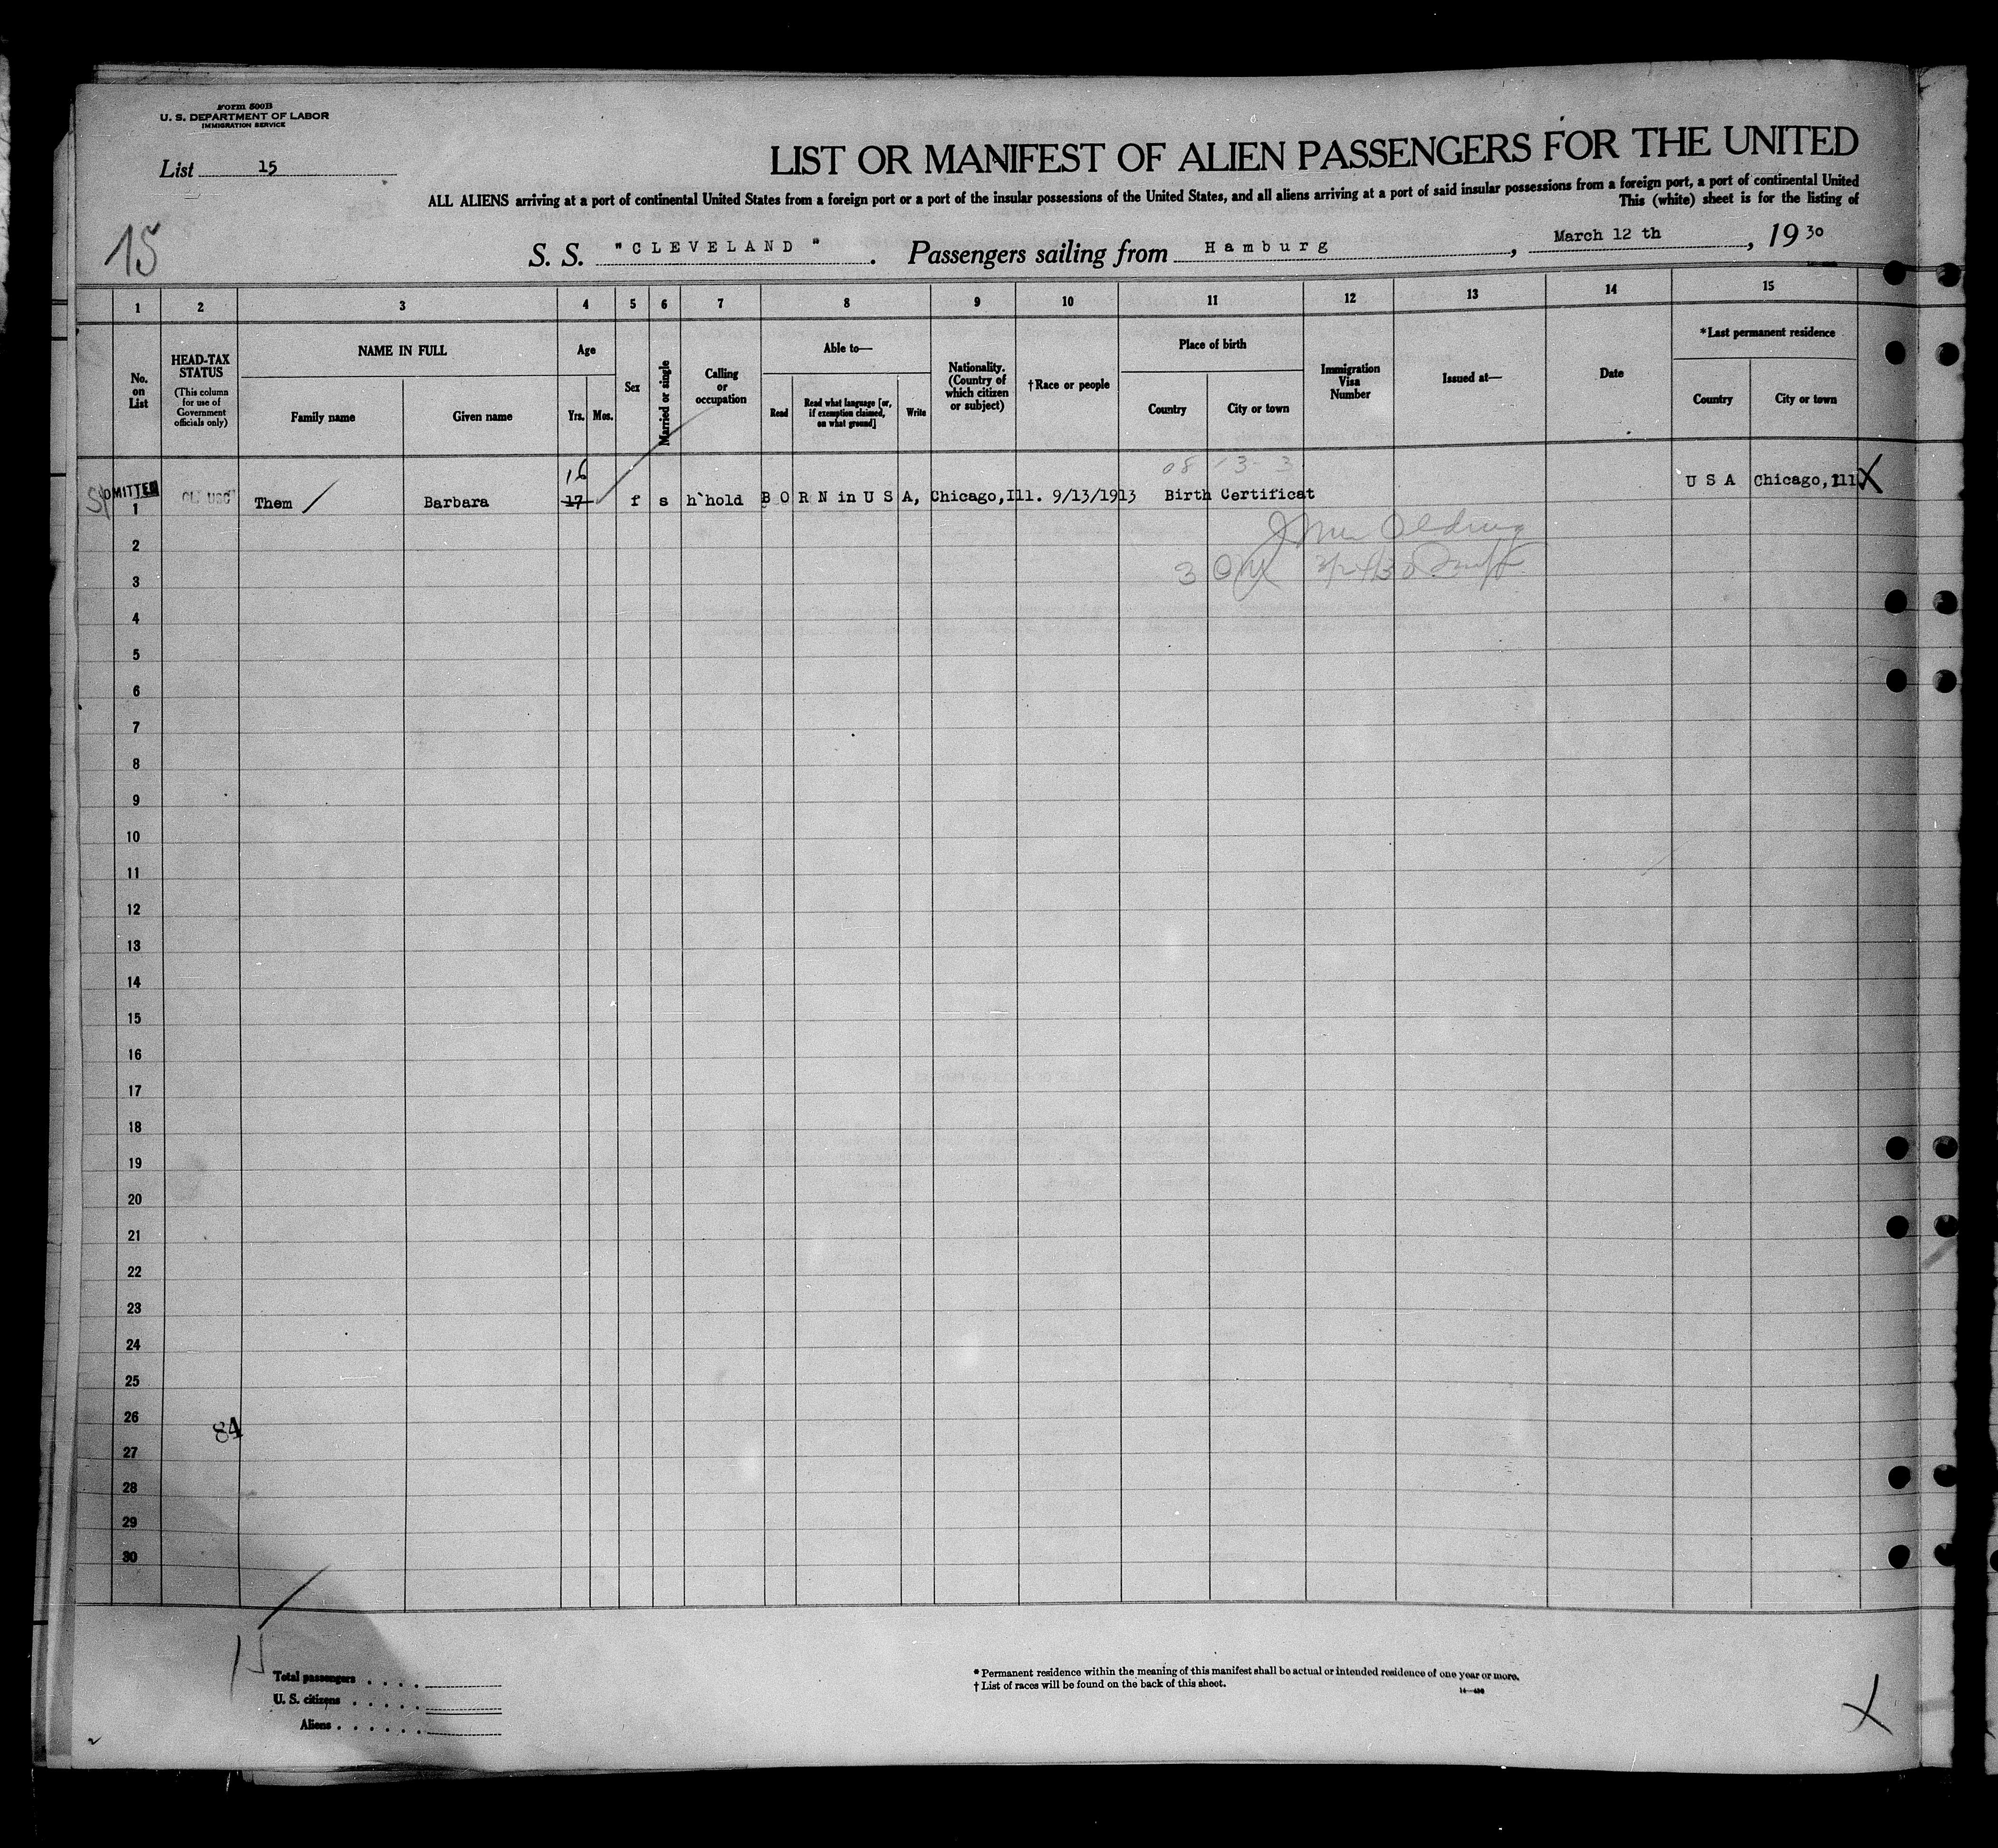 Form 500B
U. S. DEPARTMENT OF LABOR
IMMIGRATION SERVICE
List 15
LIST OR MANIFEST OF ALIEN PASSENGERS FOR THE UNITED
ALL ALIENS arriving at a port of continental United States from a foreign port or a port of the insular possessions of the United States, and all aliens arriving at a port of said insular possessions from a foreign port, a port of continental United
This (white) sheet is for the listing of
15
S. S. "CLEVELAND". Passengers sailing from Hamburg, March 12 th, 19 30
1 2 3 4 5 6 7 8 9 10 11 12 13 14 15
No. on List
HEAD-TAX STATUS
(This column for use of Government officials only)
NAME IN FULL
Family name
Given name
Age
Yrs. Mos.
Sex
Married or single
Calling or occupation
Able to—
Read
Read what language [or, if exemption claimed, on what ground]
Write
Nationality. (Country of which citizen or subject)
†Race or people
Place of birth
Country
City or town
Immigration Visa Number
Issued at—
Date
*Last permanent residence
Country
City or town
16
08 - 3 - 3
1 Them / Barbara 17 f s h`hold BORN in USA, Chicago,Ill. 9/13/1913 Birth Certificat USA Chicago,Ill X
2
3
4
5
6
7
8
9
10
11
12
13
14
15
16
17
18
19
20
21
22
23
24
25
26
84
27
28
29
30
Total passengers
U. S. citizens
Aliens
* Permanent residence within the meaning of this manifest shall be actual or intended residence of one year or more.
† List of races will be found on the back of this sheet.
X